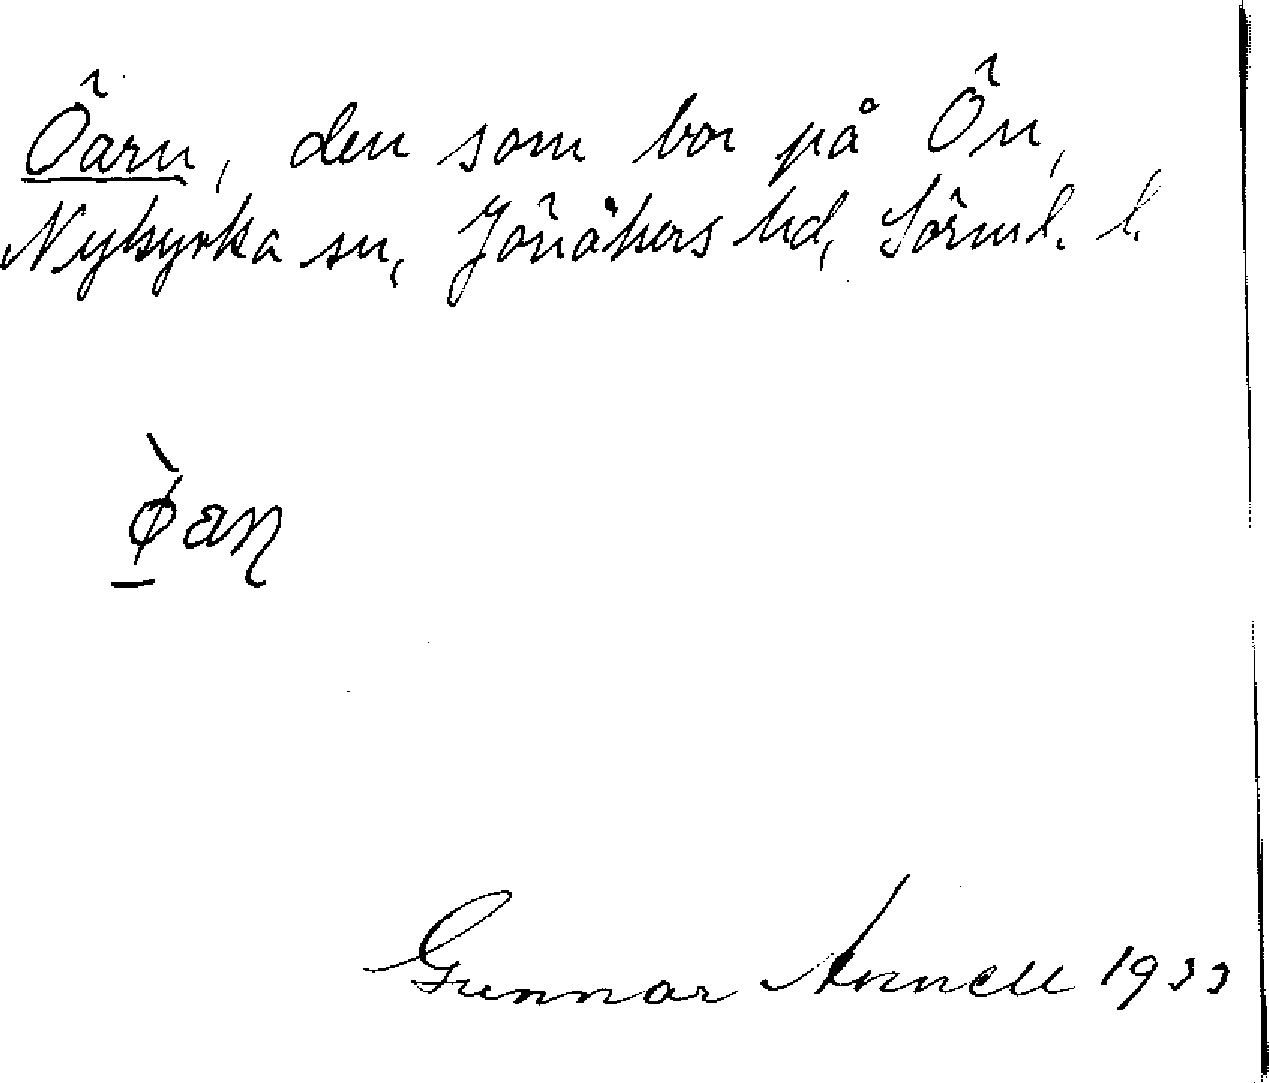 Öarn, den som bor på Ön,
Nykyrka sn, Jönåkers hd, Sörml. l.
ø̀aɳ
Gunnar Annell 1933